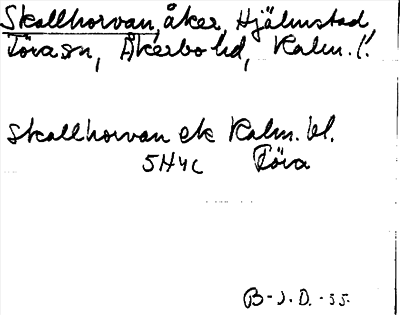 Skallhorvan, åker, Hjälmstad,
Föra sn, Åkerbo hd, Kalm. l.
Skallhorvan ek Kalm. bl.
5H4c Föra
B-J.D. -55.